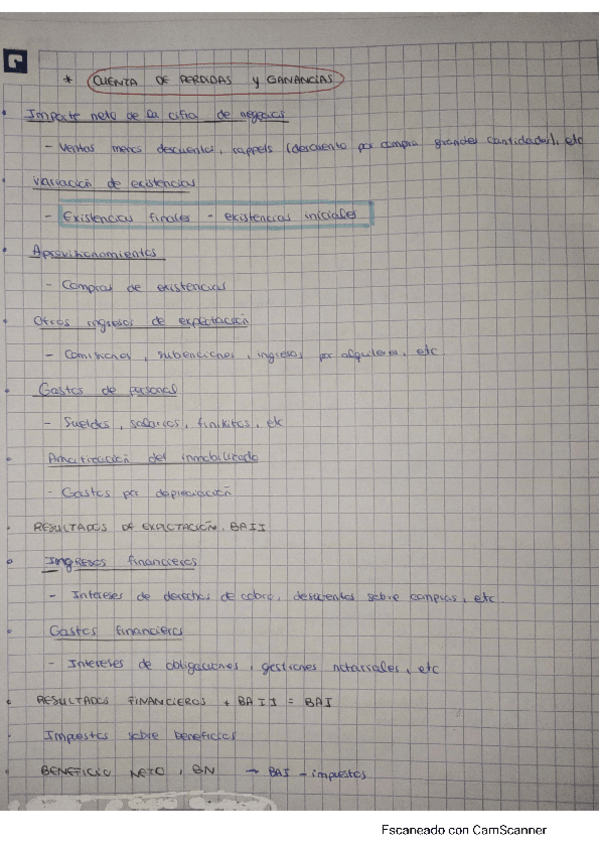 * CUENTA DE PERDIDAS Y GANANCIAS
• Importe neto de la cifra de negocios
- Ventas menos descuentos, rappels (descuento por compra grandes cantidades), etc
• Variación de existencias
- Existencias finales - existencias iniciales
• Aprovisionamientos
- Compras de existencias
• Otros ingresos de explotación
- Comisiones, subenciones, ingresos por alquileres, etc
• Gastos de personal
- Sueldos, salarios, finikitos, etc
• Amortización del inmobilizado
- Gastos por depreciación
• RESULTADOS DE EXPLOTACIÓN, BAII
• Ingresos financieros
- Intereses de derechos de cobro, descuentos sobre compras, etc
• Gastos financieros
- Intereses de obligaciones, gestiones notariales, etc
• RESULTADOS FINANCIEROS + BAII = BAI
• Impuestos sobre beneficios
• BENEFICIO NETO, BN → BAI - impuestos
Escaneado con CamScanner